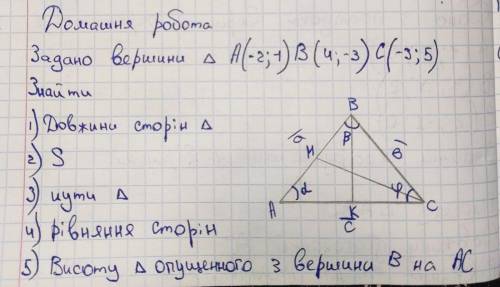 Домашня робота
Задано вершини Δ A(-2;-1) B(4;-3) C(-3;5)
Знайти
1) Довжини сторін Δ
2) S
3) кути Δ
4) рівняння сторін
5) Висоту Δ опущенного з вершини B на AC
B
a
β
в
H
A
α
K
φ
C
c